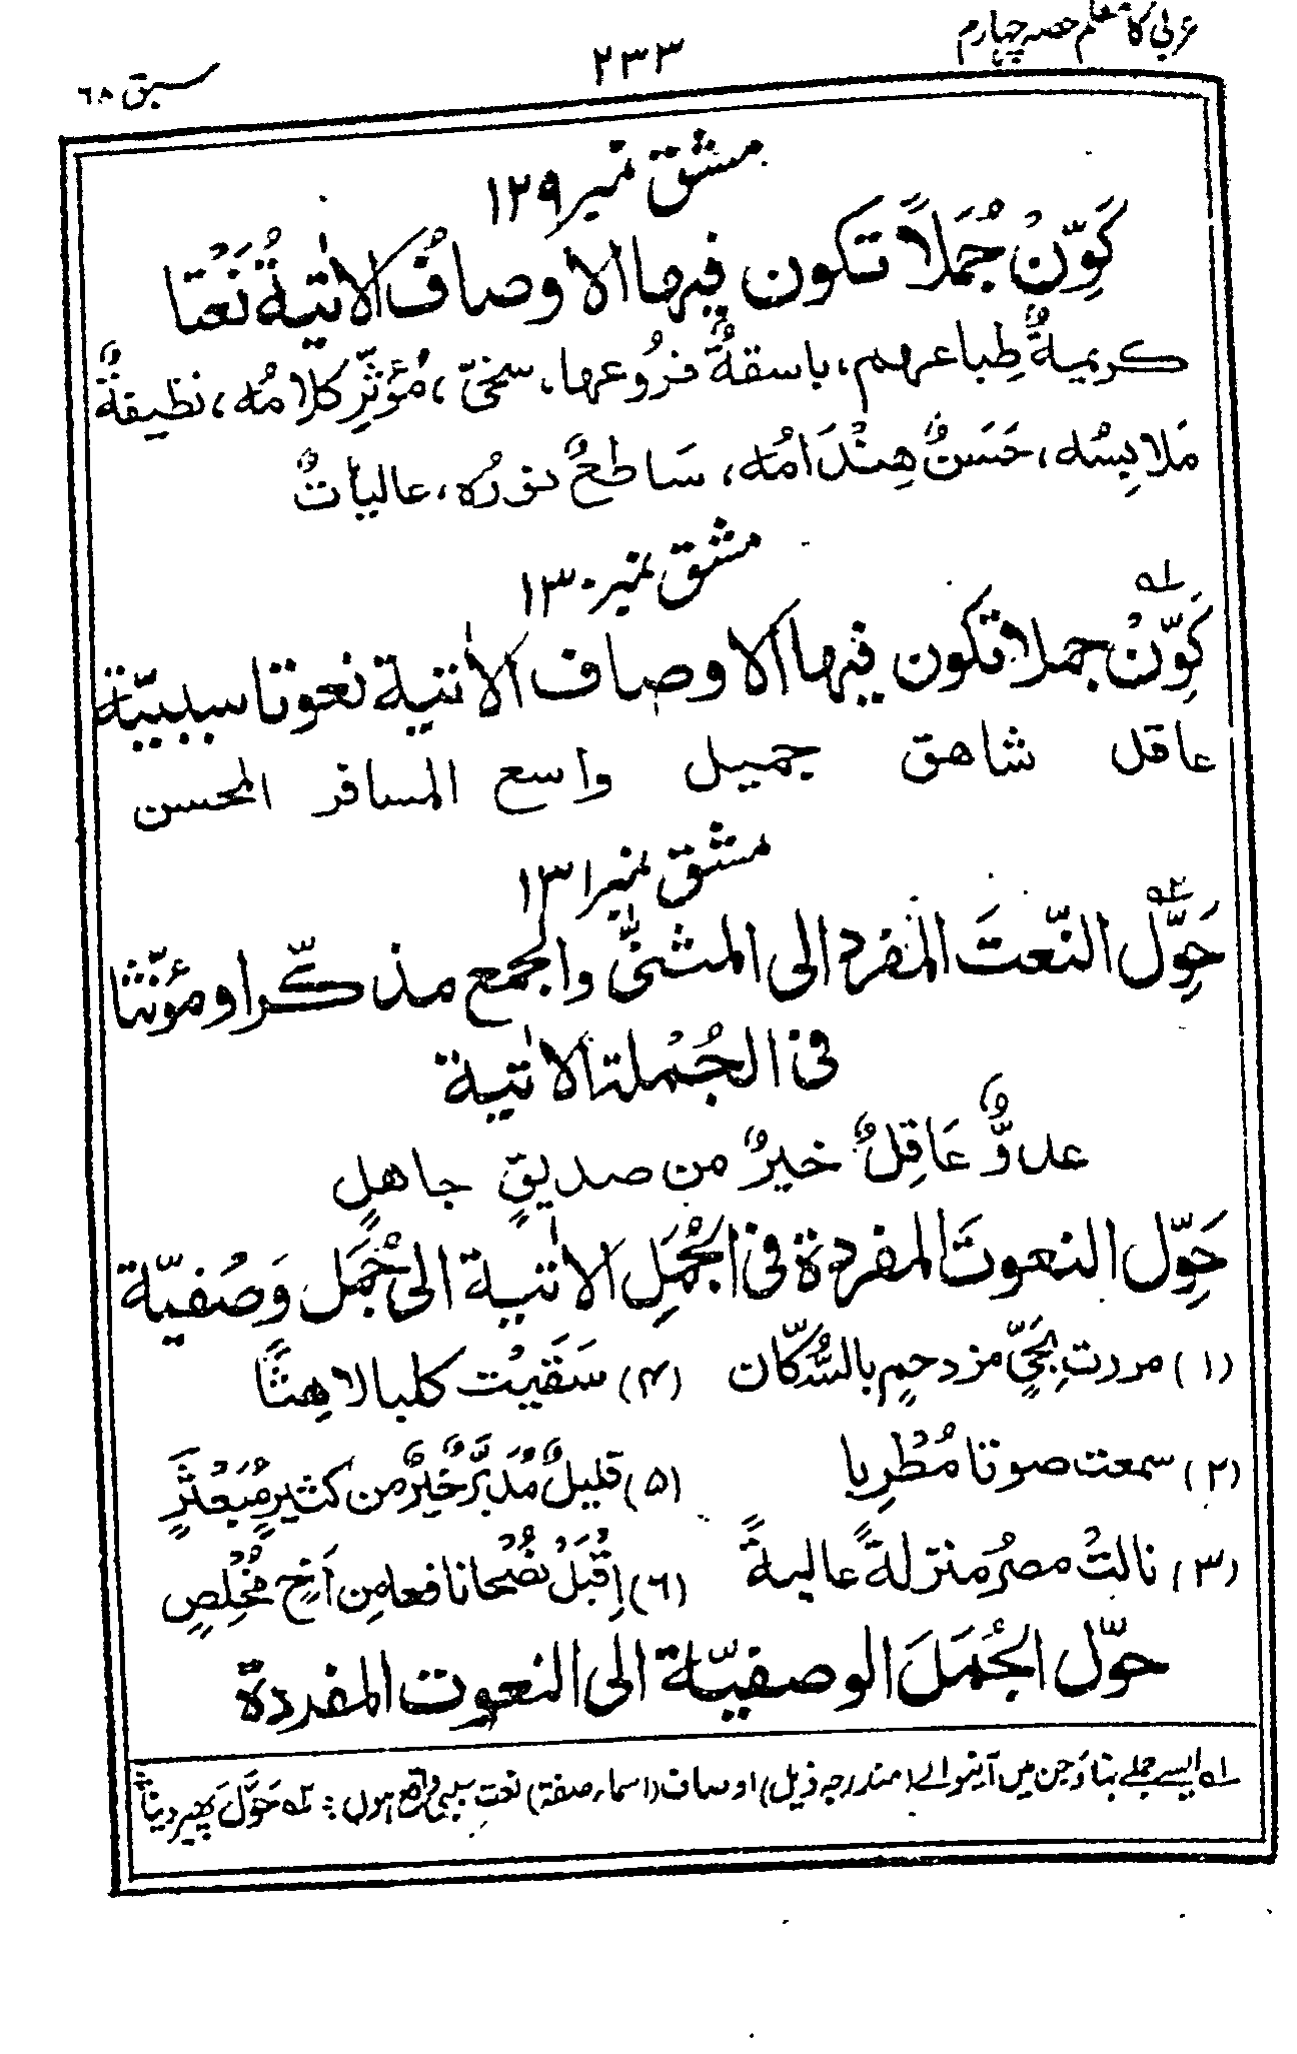 عربی کا معلم حصہ چہارم
۲۳۳
سبق ۶۸
مشق نمبر ۱۲۹
كَوِّنْ جُمَلاً تكون فيها الاوصافُ الاٰتيةُ نَعْتا
كريمةٌ طِباعهم، باسقةٌ فرُوعها، سخىّ، مُؤثِّر كلامُه، نظيفةٌ
مَلابِسُه، حَسَنٌ هِنْدَامُه، سَاطعٌ نورُه، عالياتٌ
مشق نمبر ۱۳۰
كَوِّنْ جملا تكون فيها الاوصاف الاٰتية نعوتا سببيّة ۱؎
عاقل شاهق جميل واسع المسافر المحسن
مشق نمبر ۱۳۱
حَوِّل النّعتَ المفرد الى المثنىّٰ والجمع مذكّرا ومؤنّثا ۲؎
فى الجُمْلة الاٰتية
عدوٌّ عَاقِلٌ خيرٌ من صديقٍ جاهلٍ
حَوِّل النعوتَ المفردة فى الجُمَلِ الاٰتية الى جُمَل وَصْفيّة
(۱) مررت بِحَيٍّ مزدحمٍ بالسُّكّان (۴) سَقَيْت كلبا لاهِثًا
(۲) سمعت صوتا مُطْرِبا (۵) قليلٌ مُدَبَّرٌ خيرٌ من كثيرٍ مُبَعْثَرٍ
(۳) نالتْ مصرُ منزلةً عاليةً (۶) اِقْبَلْ نُصْحا نافعا مِن اَخٍ مُخْلِصٍ
حوّل الجُمَلَ الوصفيّة الى النعوت المفردة
۱؎ ایسے جملے بناؤ جن میں آنیوالے (مندرجہ ذیل) اوصاف (اسماء صفۃ) نعت سببی واقع ہوں ؛ ۲؎ حَوَّلَ پھیر دینا